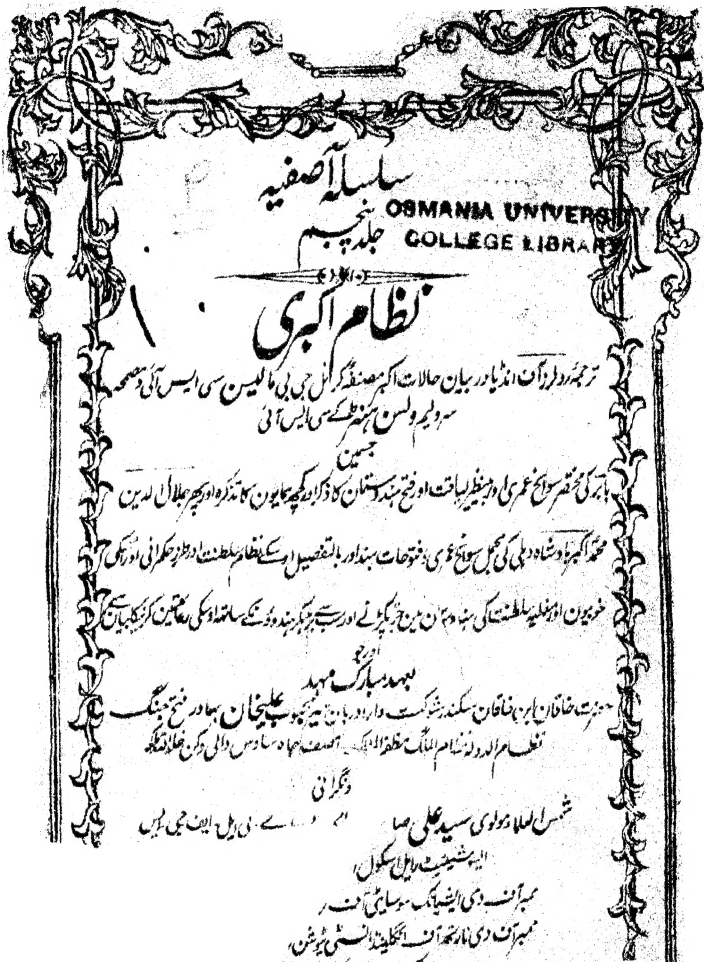 سلسلہ آصفیہ
جلد پنجم
OSMANIA UNIVERSITY
COLLEGE LIBRARY
نظام اکبری
ترجمہ رولرز آف انڈیا در بیان حالات اکبر مصنفہ کرنل جی بی مالیسن سی ایس آئی و مصححہ
سر ولیم ولسن ہنٹر کے سی ایس آئی
جسمین
بابر کی مختصر سوانح عمری اور بینظیر لیاقت اور فتح ہندوستان کا ذکر اور کچھ ہمایون کا تذکرہ اور پھر جلال الدین
محمد اکبر بادشاہ دہلی کی مجمل سوانح عمری و فتوحات ہند اور بالتفصیل اوسکے نظام سلطنت اور طرز حکمرانی اور اسکی
خوبیون اور مغلیہ سلطنت کی ہندوستان مین جڑ پکڑنے اور سب سے بڑھکر ہندوؤنکے ساتھ اوسکی رعایتین کرنیکا بیان ہے
اور جو
بعہد مبارک مہد
حضرت خاقان ابن خاقان سکندر شوکت دارا دربان میر محبوب علیخان بہادر فتح جنگ
نظام الدولہ نظام الملک آصف جاہ سادس والی دکن خلد اللہ ملکہ
ونگرانی
شمس العلما مولوی سید علی صا بی ایل۔ ایف جی ایس
ایسوشیئیٹ رایل اسکول
ممبر آف دی ایشیاٹک سوسایٹی آف
ممبر آف دی نارتھ آف انگلینڈ انسٹی ٹیوشن